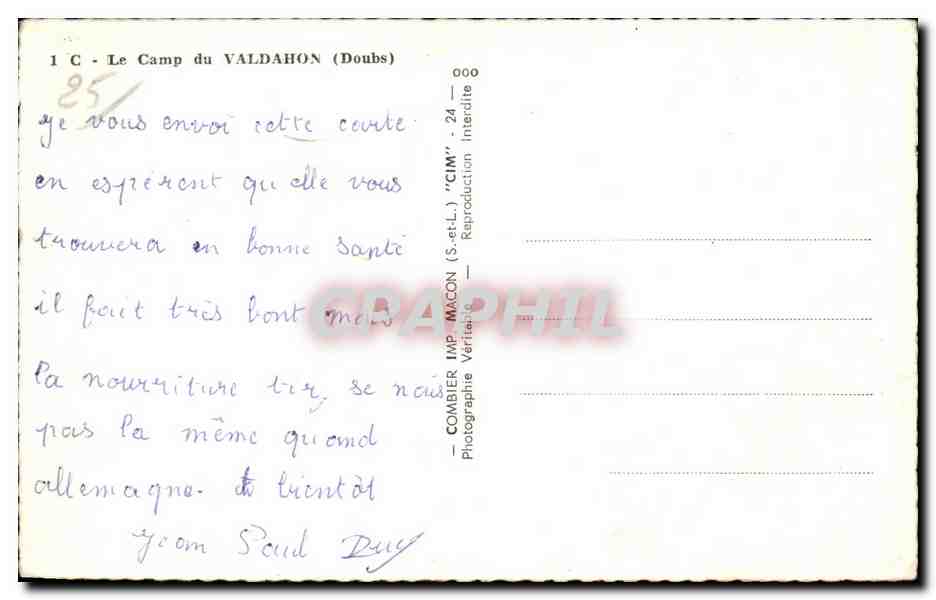 1 C - Le Camp du VALDAHON (Doubs)
25
Je vous envoi cette carte
en espérent qu elle vous
trouvera en bonne santé
il fait très bont mais
la nourriture se nais
pas la même quand
allemagne. a bientôt
Jean Paul
— COMBIER IMP. MACON (S.-et-L.) "CIM" - 24 — 000
Photographie Véritable — Reproduction Interdite
CPAPHIL